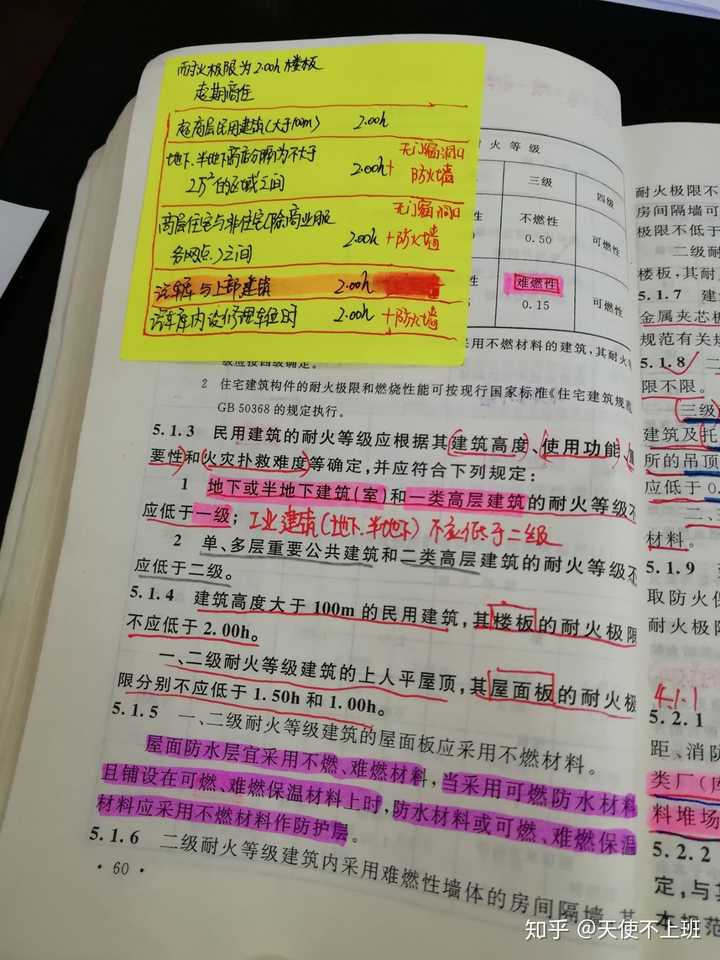 耐火极限为2.00h楼板
超高层民用建筑(大于100m) 2.00h
地下、半地下商店分隔为不大于 2.00h+ 无门窗洞口
2万²的区域之间 防火墙
高层住宅与非住宅(除商业服 无门窗洞口
务网点)之间 2.00h +防火墙
汽车库与上部建筑 2.00h
汽车库内设修理车位时 2.00h +防火墙
火等级
三级 四级
不燃性 可燃性
0.50
难燃性 可燃性
0.15
采用不燃材料的建筑,其耐火等
级应按四级确定。
2 住宅建筑构件的耐火极限和燃烧性能可按现行国家标准《住宅建筑规范
GB 50368 的规定执行。
5.1.3 民用建筑的耐火等级应根据其建筑高度、使用功能、重
要性和火灾扑救难度等确定,并应符合下列规定:
1 地下或半地下建筑(室)和一类高层建筑的耐火等级不
应低于一级; 工业建筑(地下.半地下)不应低于二级
2 单、多层重要公共建筑和二类高层建筑的耐火等级不
应低于二级。
5.1.4 建筑高度大于 100m 的民用建筑,其楼板的耐火极限
不应低于 2.00h。
一、二级耐火等级建筑的上人平屋顶,其屋面板的耐火极
限分别不应低于 1.50h 和 1.00h。
5.1.5 一、二级耐火等级建筑的屋面板应采用不燃材料。
屋面防水层宜采用不燃、难燃材料,当采用可燃防水材料
且铺设在可燃、难燃保温材料上时,防水材料或可燃、难燃保温
材料应采用不燃材料作防护层。
5.1.6 二级耐火等级建筑内采用难燃性墙体的房间隔墙,其
· 60 ·
耐火极限不
房间隔墙可
极限不低于
二级耐
楼板,其耐
5.1.7 建
金属夹芯板
规范有关规
5.1.8 二
限不限。
三级
建筑及托
所的吊顶
应低于0.
二、
材料。
5.1.9
取防火保
耐火极限
4.1.1
5.2.1
距、消防
类厂(库
料堆场
5.2.2
定,与其
本规范
知乎 @天使不上班